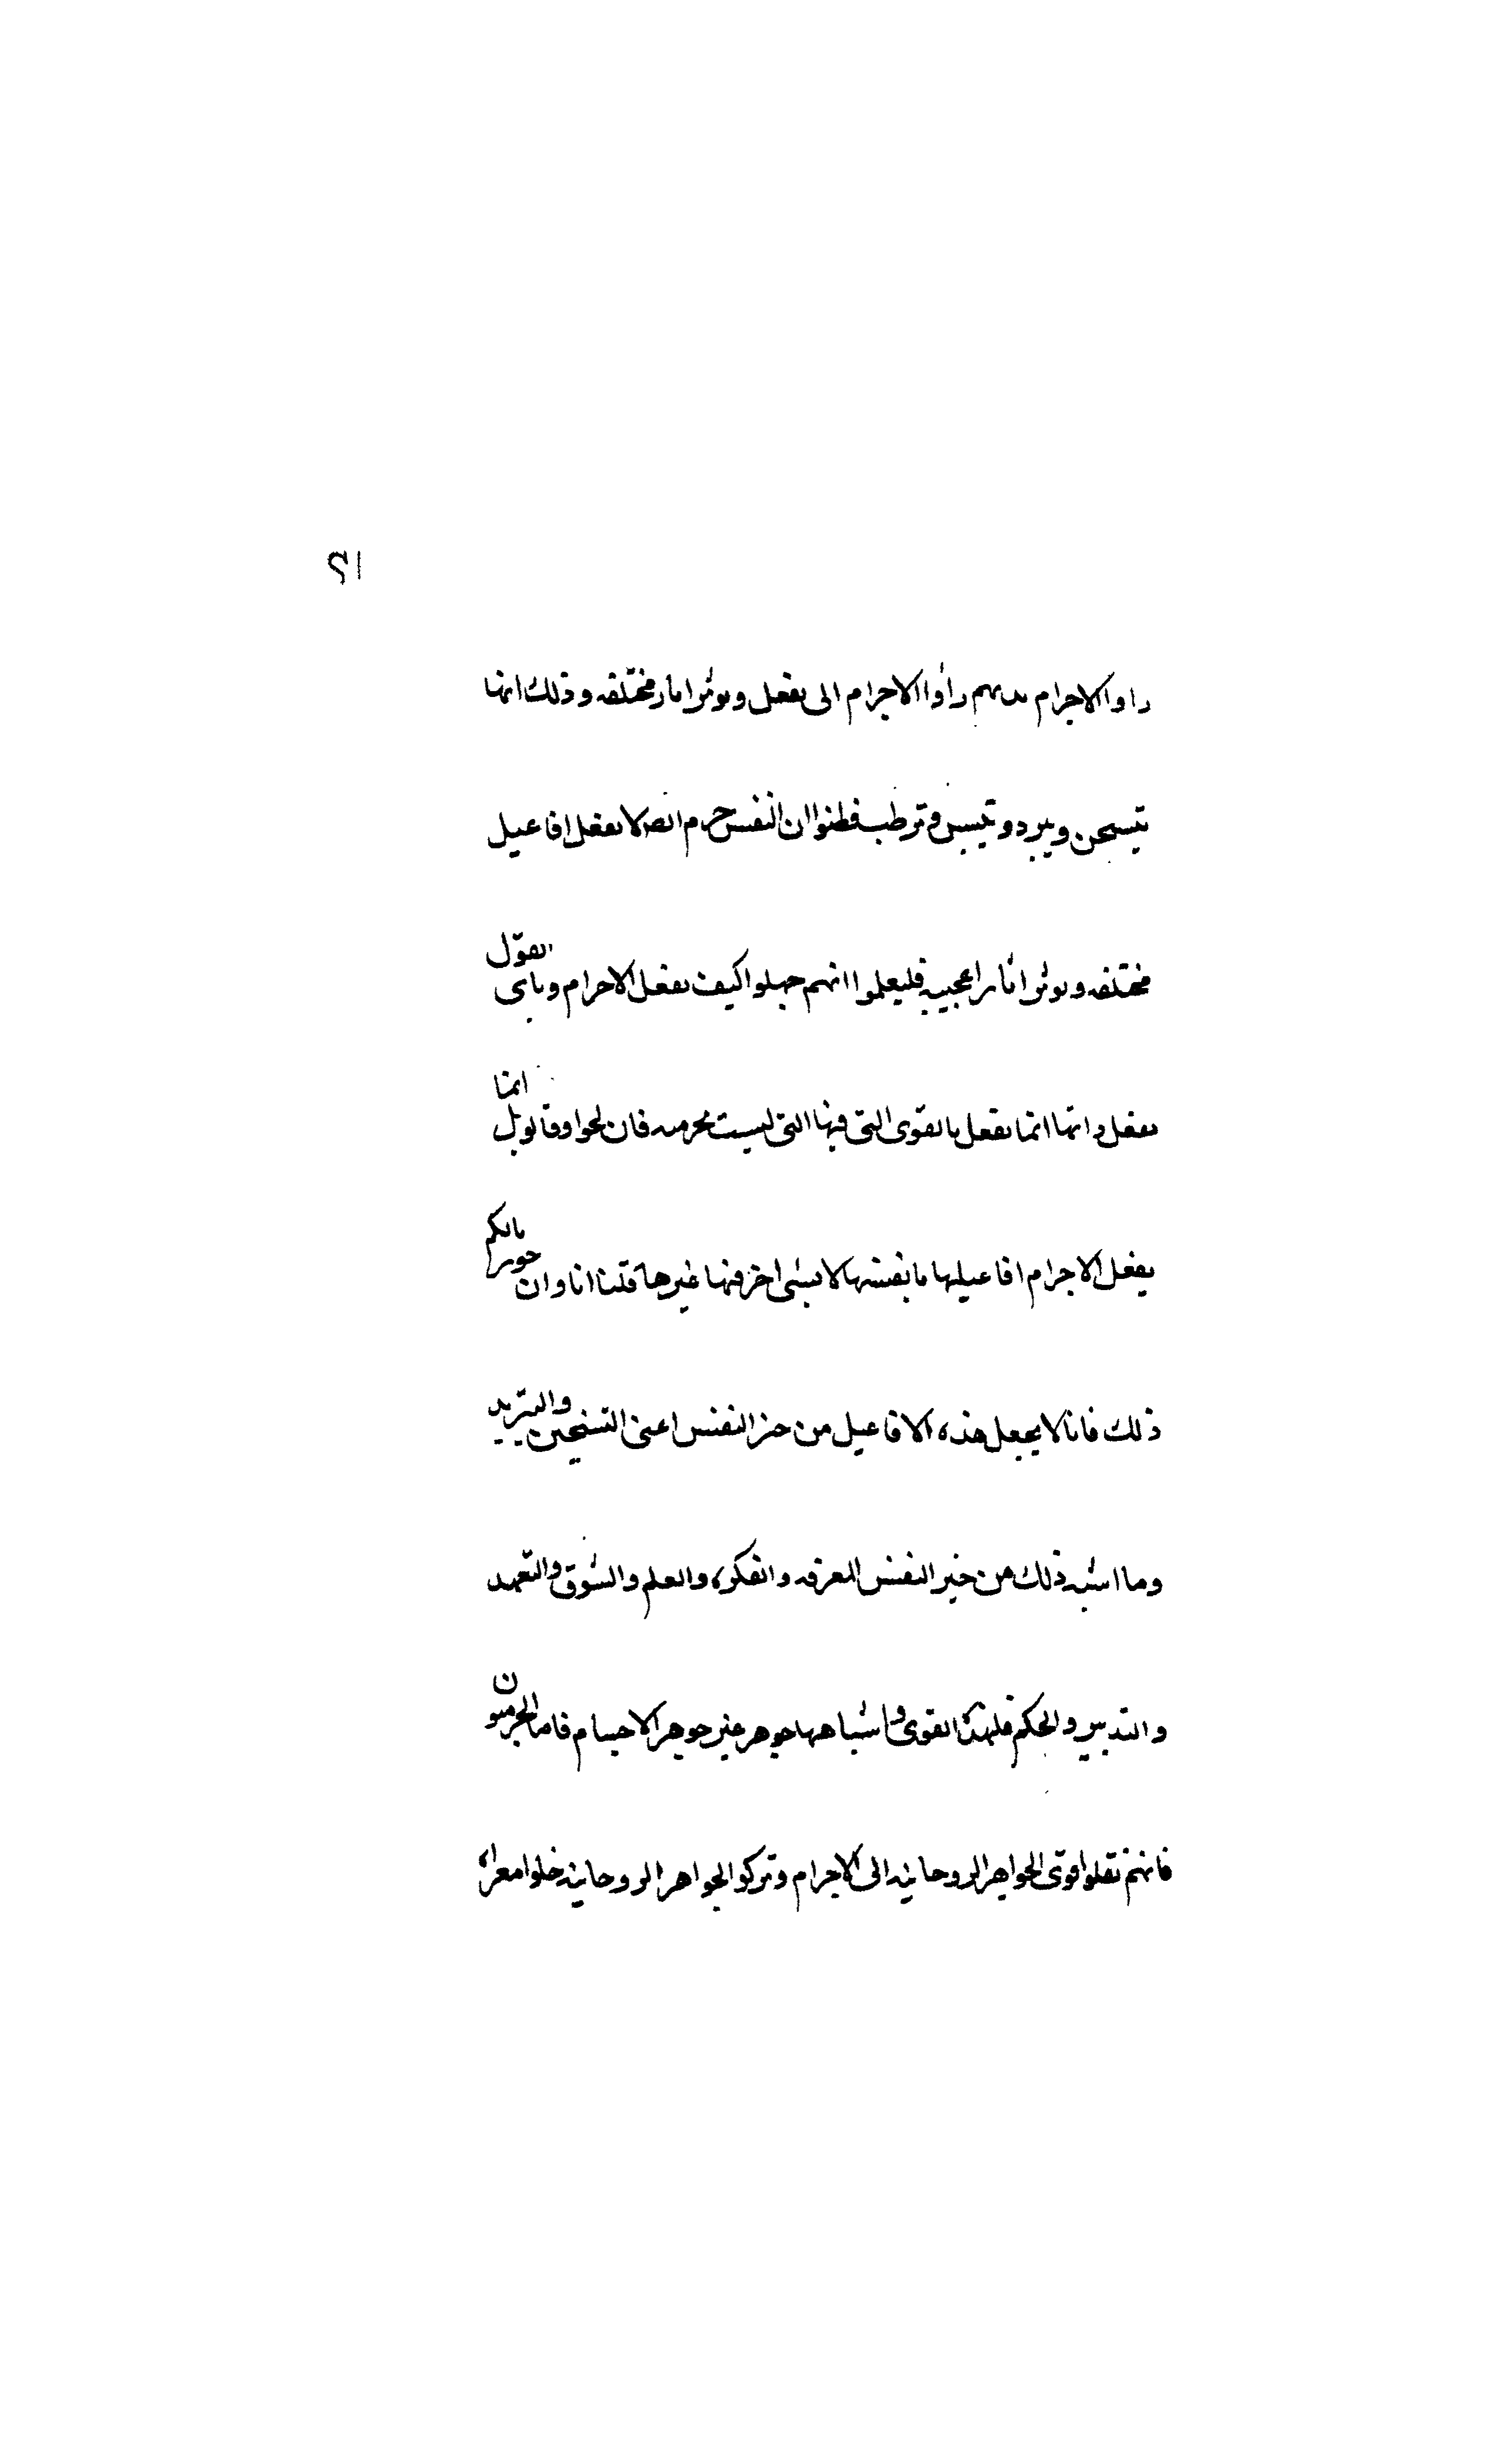 ١٢
راوا الاجرام راوا الاجرام الى تفعل وتوثر اثار مختلفه وذلك انها
تسخن وتبرد وتيبس وترطب فظنوا ان النفس جرم ايضا لا تفعل افاعيل
مختلفه وتوثر اثارا عجيبه فليعلموا انهم جهلوا كيف تفعل الاجرام وباى القول
تفعل وانها انما تفعل بالقوى التى فيها التى ليست بجرميه فان لجوا وقالوا بل انما
يفعل الاجرام افاعيلها بانفسها لا بشى اخر فيها غيرها قلنا انا وان جوزنا لكم
ذلك فانا لا نجعل هذه الافاعيل من حيز النفس اعنى التسخين والتبريد
وما اشبه ذلك من حيز النفس المعرفه والفكره والعلم والشوق والتعهد
والتدبير والحكم فلهذه القوى واشباهها جوهر غير جوهر الاجسام فاما الجرميون
فانهم نقلوا قوى الجواهر الروحانيه الى الاجرام وتركوا الجواهر الروحانيه خلوا معراه